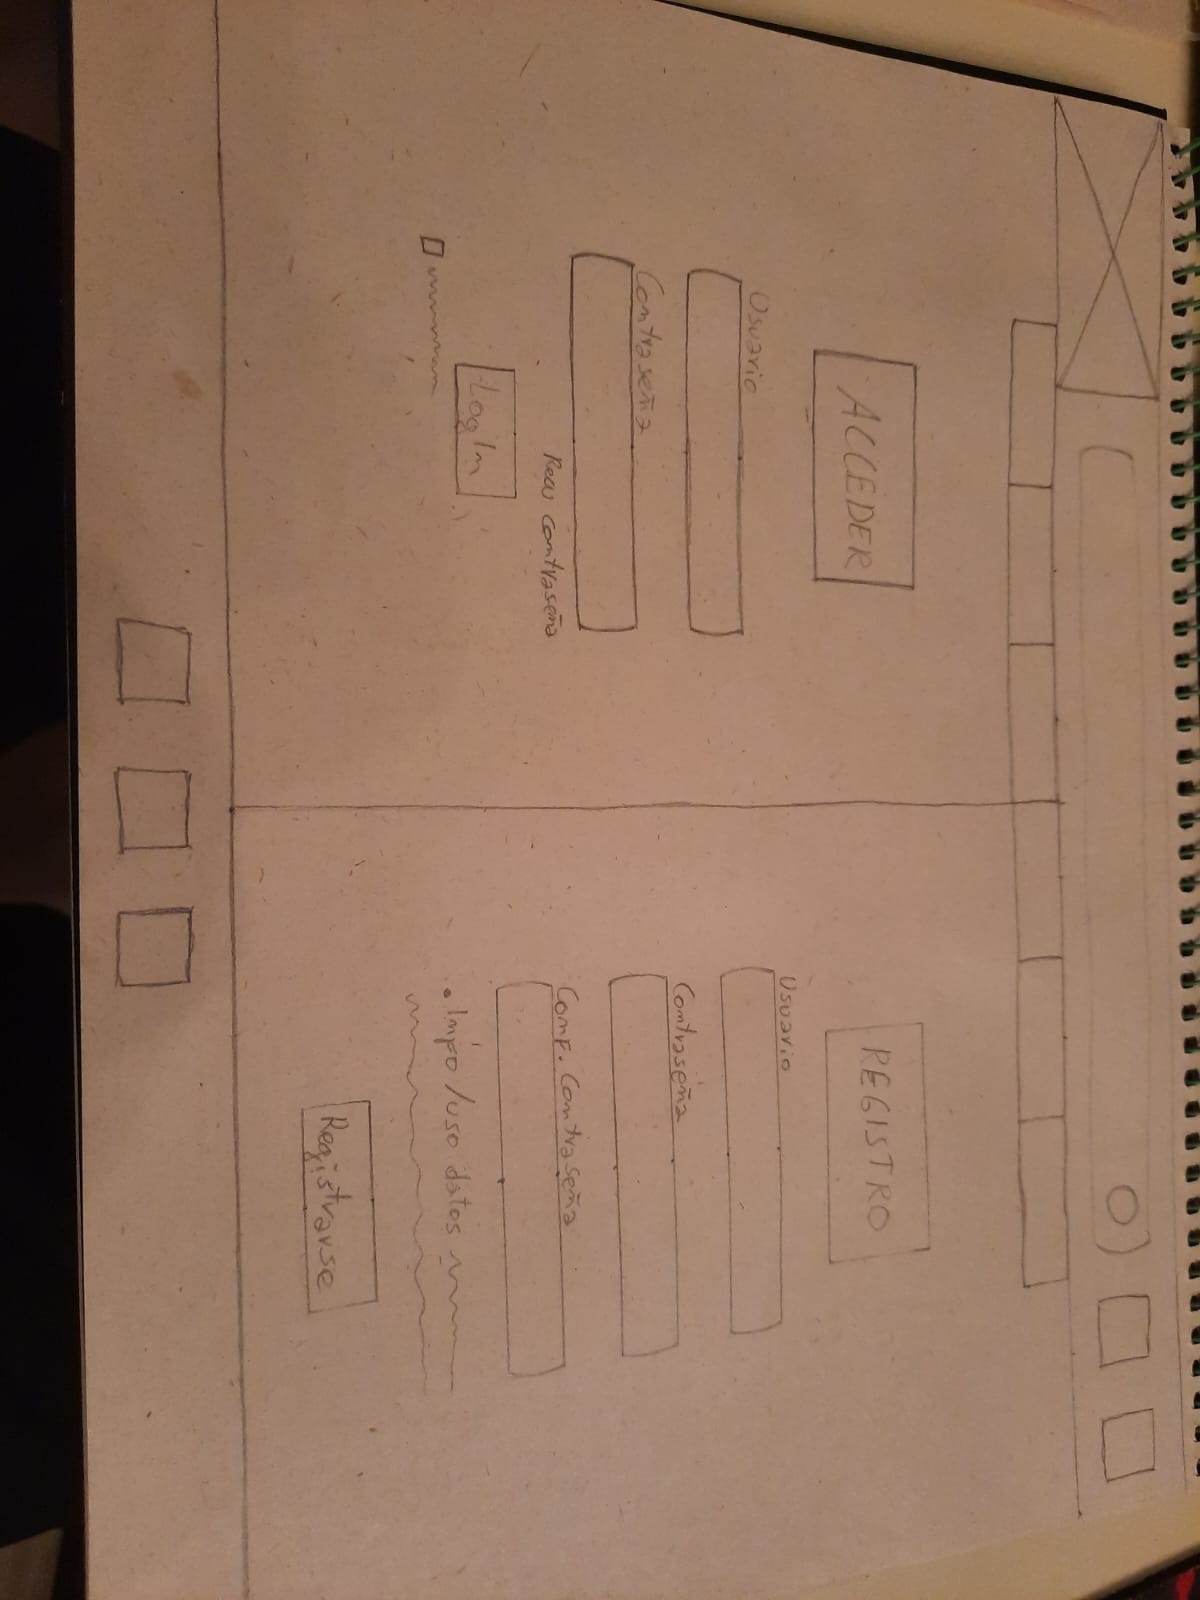 ACCEDER
Usuario
Contraseña
Recu contraseña
LogIn
REGISTRO
Usuario
Contraseña
Conf. Contraseña
• Info/uso datos
Registrarse